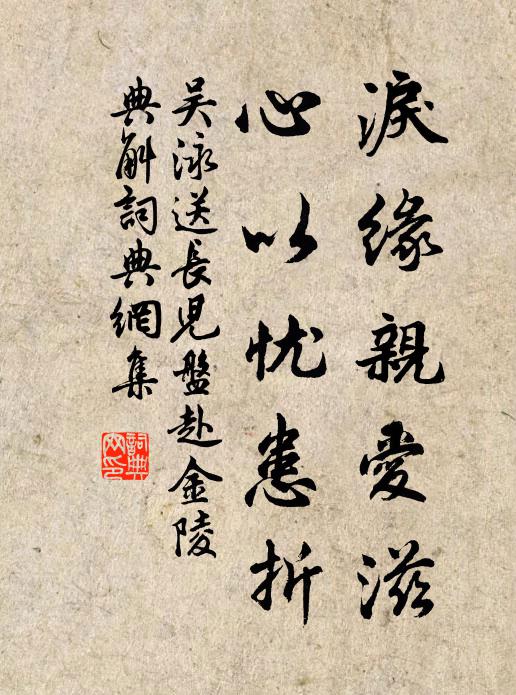 淚緣親愛滋
心以忧患折
吴泳送長児盤赴金陵
典斛詞典網集
詞典
网印